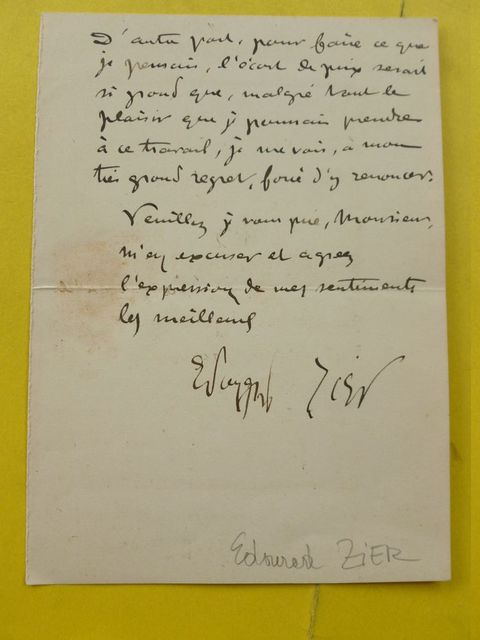 D'autre part, pour faire ce que
je pensais, l'écart de prix serait
si grand que, malgré tout le
plaisir que je pourrais prendre
à ce travail, je me vois, à mon
très grand regret, forcé d'y renoncer.
Veuillez je vous prie, Monsieur,
m'en excuser et agréer
l'expression de mes sentiments
les meilleurs
Edouard Zier
Edouard ZIER